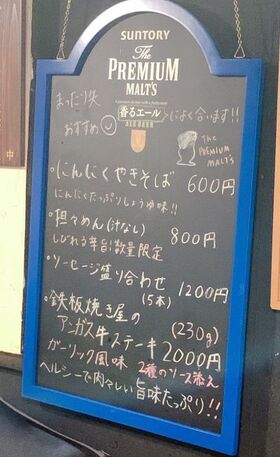 SUNTORY
The
PREMIUM
MALT'S
香るエール
ALE BEER
によく合います!!
まったり夫
おすすめ
The
PREMIUM
MALT'S
・にんにくやきそば 600円
にんにくたっぷりしょうゆ味!!
・担々めん(汁なし) 800円
しびれる辛旨!数量限定
・ソーセージ盛り合わせ 1200円
(5本)
・鉄板焼き屋の
アンガス牛ステーキ (230g) 2000円
ガーリック風味 2種のソース添え
ヘルシーで肉々しい旨味たっぷり!!